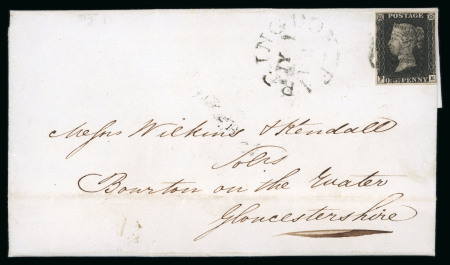 POSTAGE
ONE PENNY
Messrs Wilkins & Kendall
Solrs
Bourton on the Water
Gloucestershire